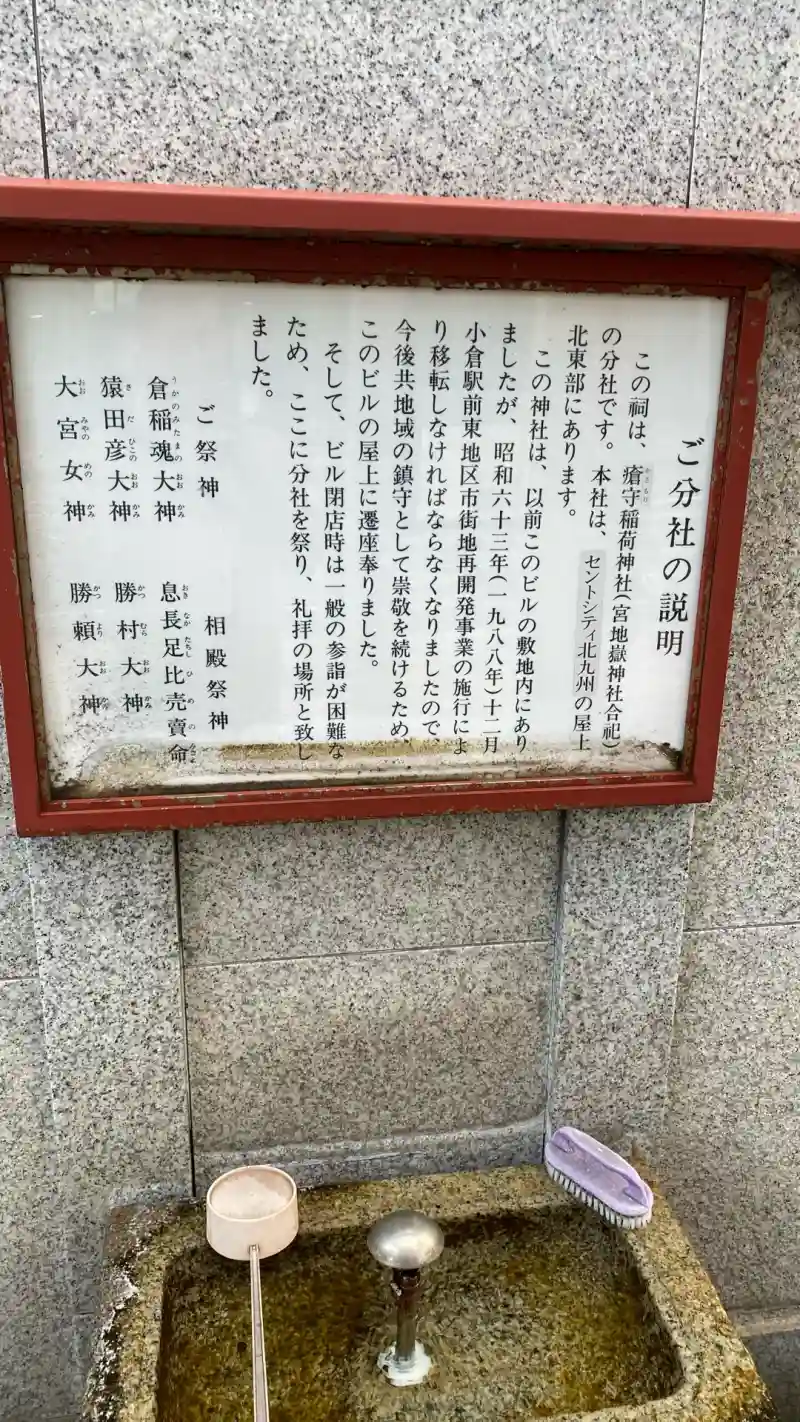 ご分社の説明
この祠は、瘡守稲荷神社(宮地嶽神社合祀)
の分社です。本社は、セントシティ北九州の屋上
北東部にあります。
この神社は、以前このビルの敷地内にあり
ましたが、昭和六十三年(一九八八年)十二月
小倉駅前東地区市街地再開発事業の施行によ
り移転しなければならなくなりましたので、
今後共地域の鎮守として崇敬を続けるため、
このビルの屋上に遷座奉りました。
そして、ビル閉店時は一般の参詣が困難な
ため、ここに分社を祭り、礼拝の場所と致し
ました。
ご祭神
倉稲魂大神
猿田彦大神
大宮女神
相殿祭神
息長足比売賣命
勝村大神
勝頼大神